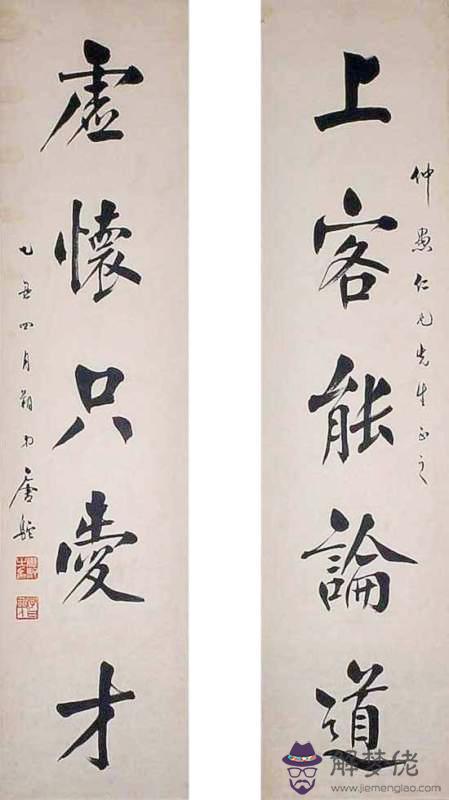 仲愚仁兄先生正之
上客能論道
虛懷只愛才
乙丑四月朔弟唐駝
解梦佬
www.jiemenglao.com